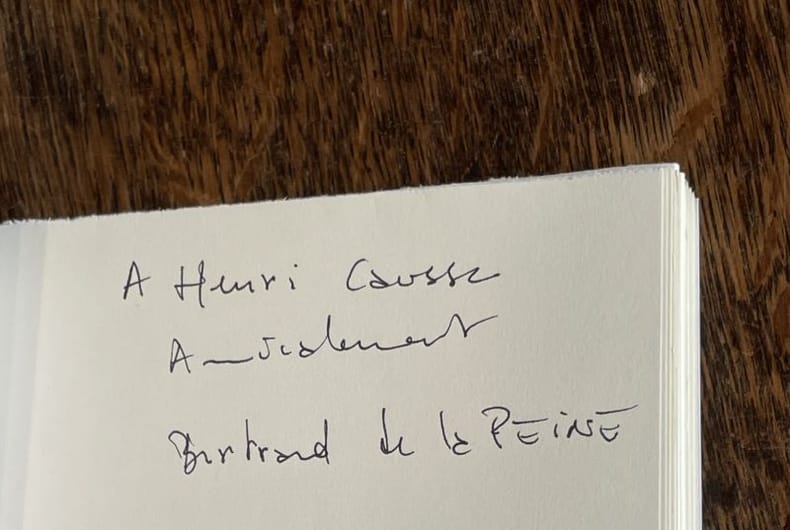 A Henri Causse
Amicalement
Bertrand de la PEINE